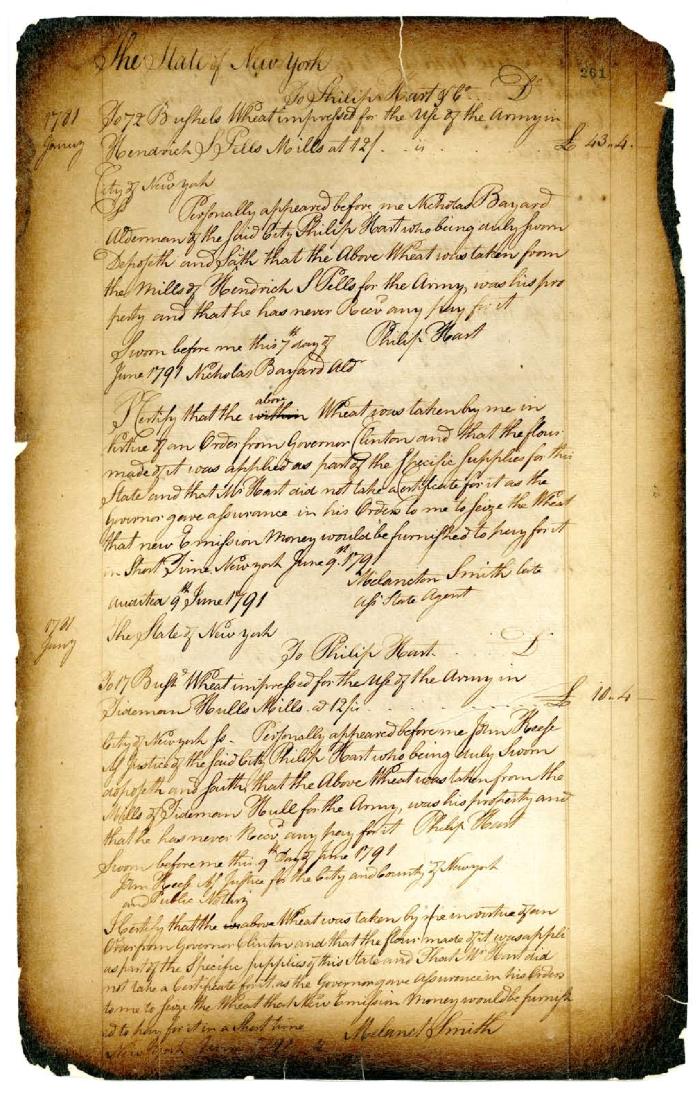 The State of New York
261
To Philip Hart & Co Dr
1781 To 72 Bushels Wheat impressed for the Use of the Army in
Janury Hendrich S Pells Mills at 12/. is £ 43..4.
City of New York
Ss Personally appeared before me Nicholas Bayard
Alderman of the said City Philip Hart who being duly Sworn
Deposeth and Saith that the Above Wheat was taken from
the Mills of Hendrich S Pells for the Army, was his pro
perty and that he has never Recd any pay for it
Sworn before me this 7th day of Philip Hart
June 1791 Nicholas Bayard Aldr
I Certify that the within above Wheat was taken by me in
Virtue of an Order from Governor Clinton and that the flour
made of it was applied as part of the Specific Supplies for this
State and that Mr Hart did not take a Certificate for it as the
Governor gave assurance in his Orders to me to Seize the Wheat
that new Emission Money would be furnished to pay for it
in Short Time New York June 9th 1791
Melancton Smith late
Audited 9th June 1791 Asst State Agent
1781 The State of New York
Janry To Philip Hart Dr
To 17 Bushs Wheat impressed for the Use of the Army in
Tideman Hulls Mills at 12/ is £ 10..4
City of New York Ss. Personally appeared before me John Keese
Asst Justice of the Said City Philip Hart who being duly Sworn
deposeth and Saith, that the Above Wheat was taken from the
Mills of Tideman Hull for the Army, was his property and
that he has never Recd any pay for it Philip Hart
Sworn before me this 9th Day of June 1791
John Keese Asst Justice for the City and County of New York
and Public Notary
I Certify that the above Wheat was taken by me in virtue of an
Order from Governor Clinton and that the flour made of it was appli
as part of the Specific supplies of this State and that Mr Hart did
not take a Certificate for it as the Governor gave assurence in his Orders
to me to Seize the Wheat that New Emission Money would be furnish
ed to pay for it in a Short time Melanct Smith
New York June